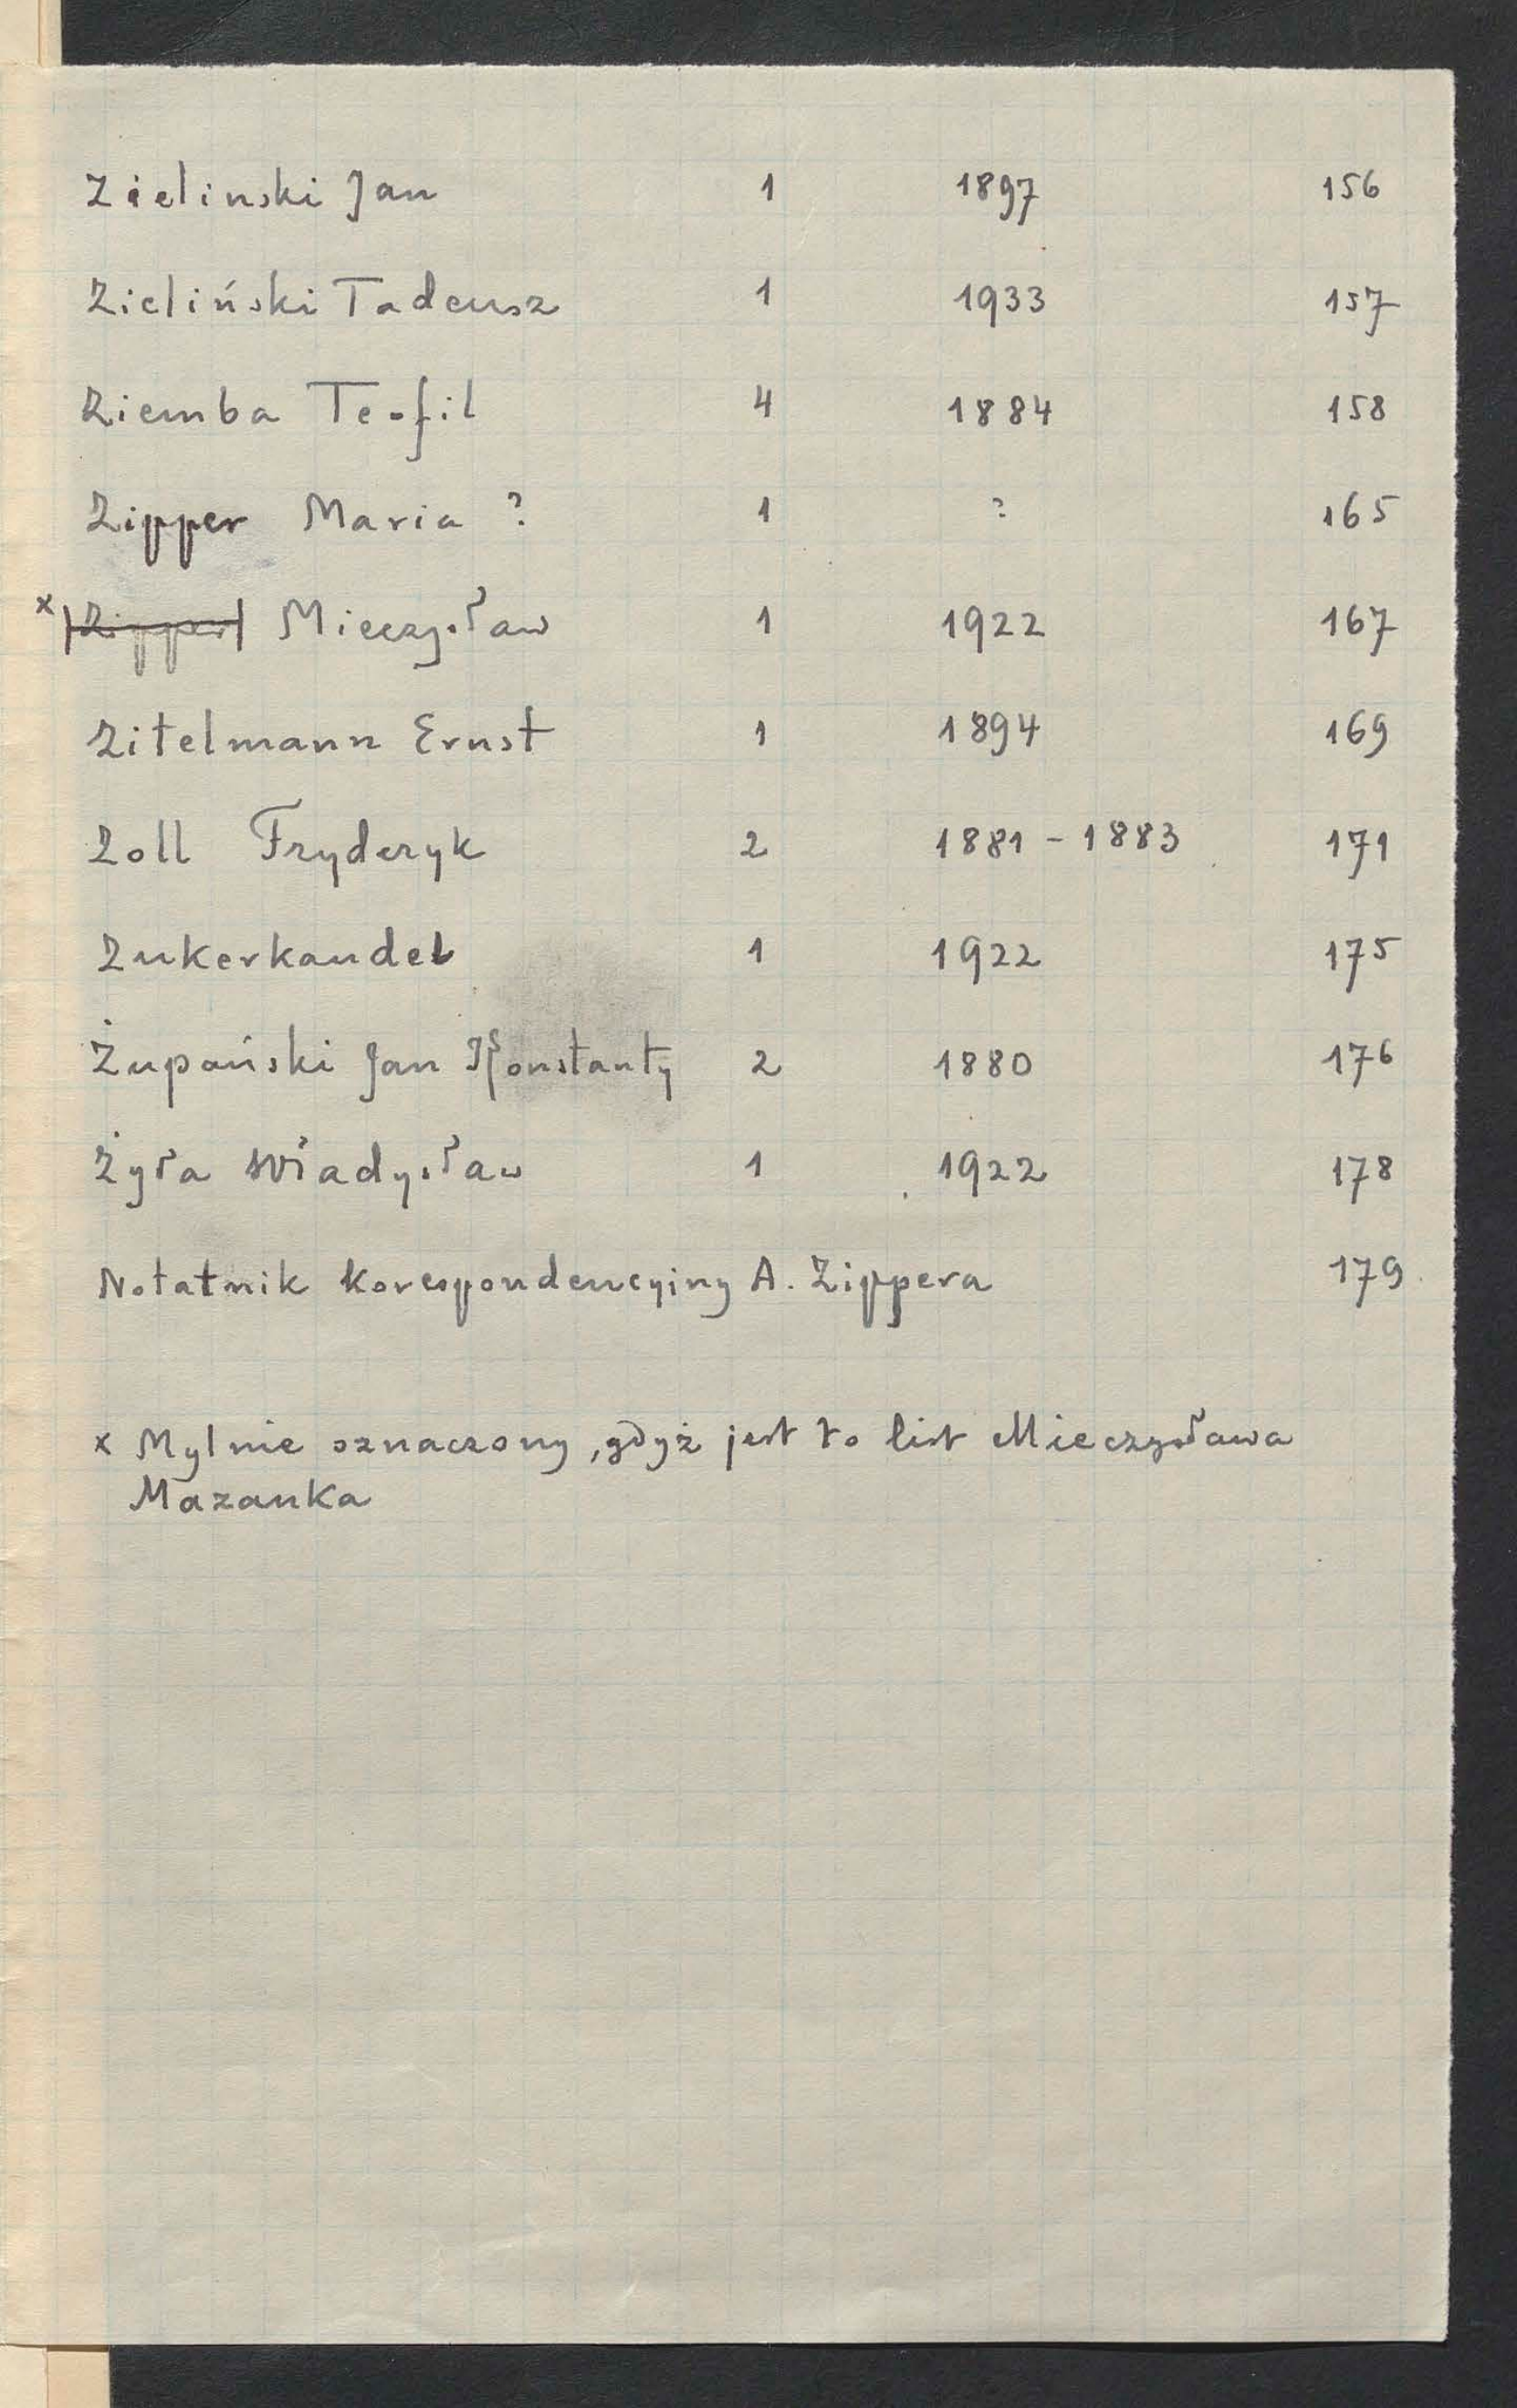 Zielinski Jan 1 1897 156
Zieliński Tadeusz 1 1933 157
Ziemba Teofil 4 1884 158
Zipper Maria ? 1 ? 165
x |Zipper| Mieczysław 1 1922 167
Zitelmann Ernst 1 1894 169
Zoll Fryderyk 2 1881 - 1883 171
Zukerkandel 1 1922 175
Żupański Jan Konstanty 2 1880 176
Żyła Władysław 1 1922 178
Notatnik korespondencyjny A. Zippera 179
x Mylnie oznaczony, gdyż jest to list Mieczysława
Mazanka